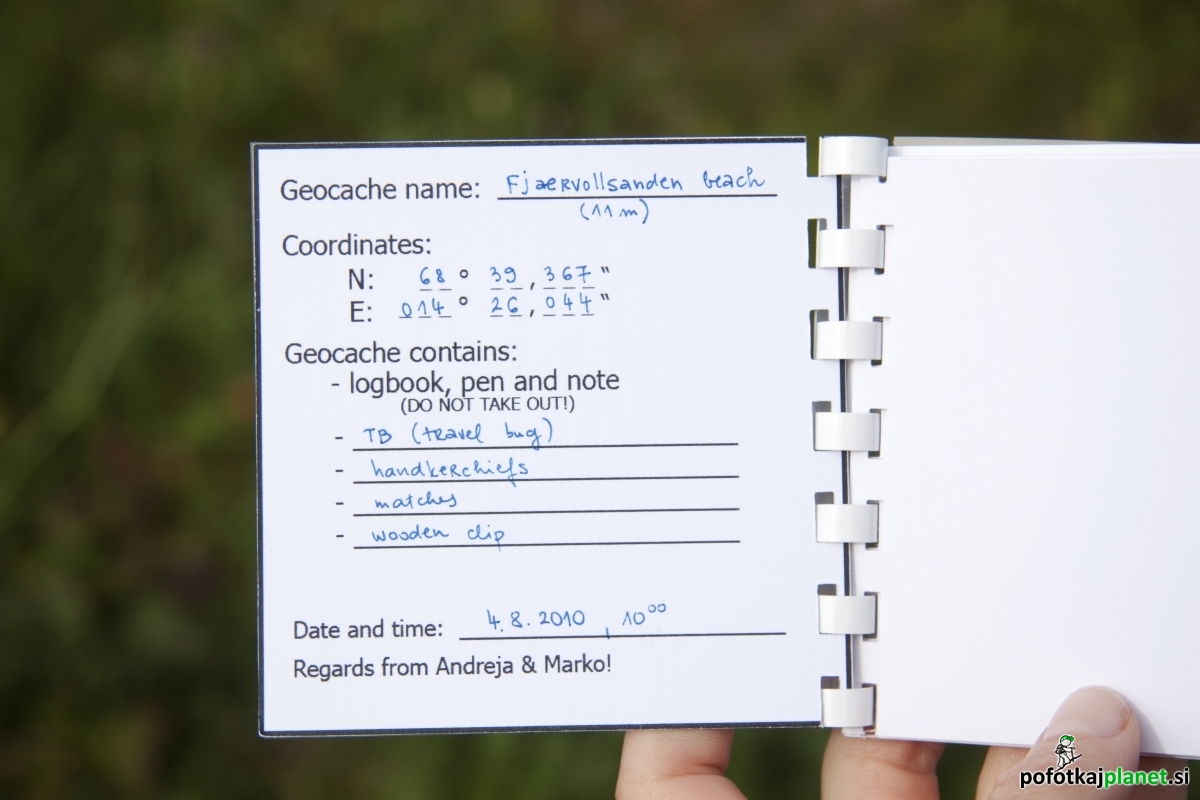 Geocache name: Fjaervollsanden beach
(11 m)
Coordinates:
N: 68 ° 39 , 367 "
E: 014 ° 26 , 044 "
Geocache contains:
- logbook, pen and note
(DO NOT TAKE OUT!)
- TB (travel bug)
- handkerchiefs
- matches
- wooden clip
Date and time: 4.8.2010, 10⁰⁰
Regards from Andreja & Marko!
pofotkajplanet.si